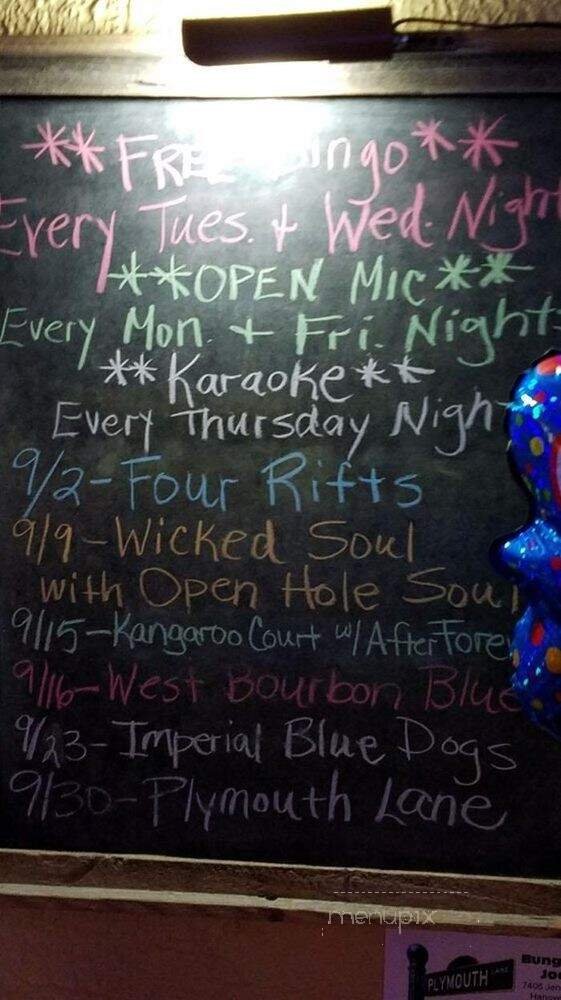 ** FREE Bingo **
Every Tues. + Wed. Night
**OPEN MIC**
Every Mon. + Fri. Nights
** Karaoke **
Every Thursday Nigh
9/2-Four Rifts
9/9-Wicked Soul
with Open Hole Soul
9/15-Kangaroo Court w/ After Fore
9/16-West Bourbon Blue
9/23-Imperial Blue Dogs
9/30-Plymouth Lane
menupix
PLYMOUTH LANE
Bung
Joe
7405 Jen
Hanov